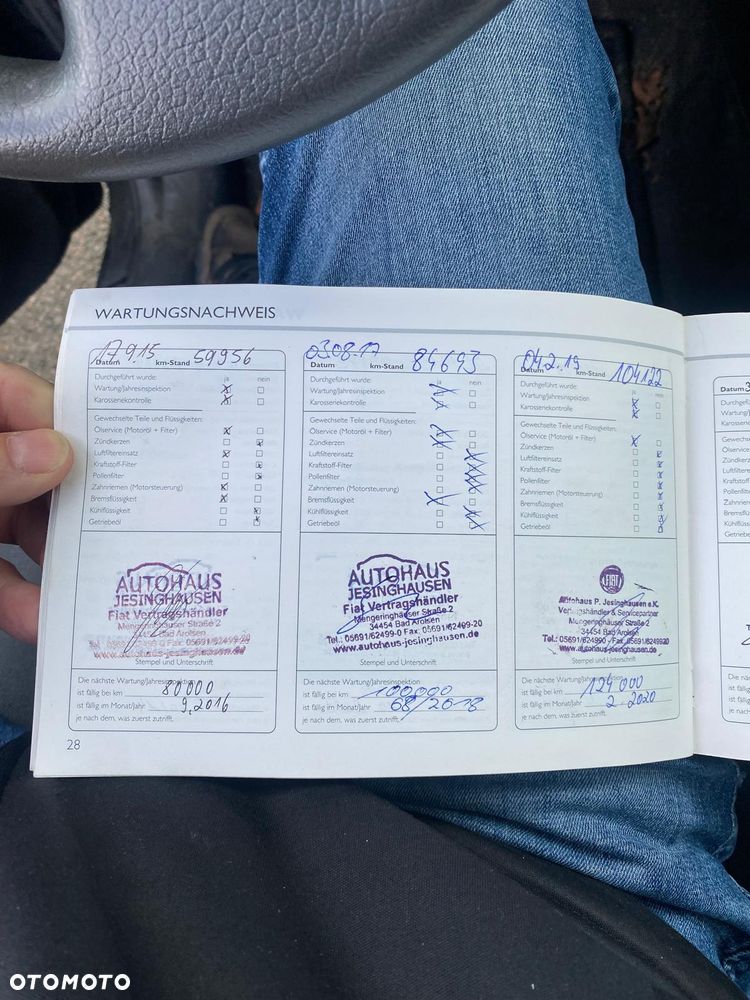 WARTUNGSNACHWEIS
17 9.15 59956
Datum km-Stand
Durchgeführt wurde: ja nein
Wartung/Jahresinspektion
Karosseriekontrolle
Gewechselte Teile und Flüssigkeiten:
Ölservice (Motoröl + Filter)
Zündkerzen
Luftfiltereinsatz
Kraftstoff-Filter
Pollenfilter
Zahnriemen (Motorsteuerung)
Bremsflüssigkeit
Kühlflüssigkeit
Getriebeöl
AUTOHAUS
JESINGHAUSEN
Fiat Vertragshändler
Mengeringhäuser Straße 2
34454 Bad Arolsen
www.autohaus-jesinghausen.de
Stempel und Unterschrift
Die nächste Wartung/Jahresinspektion
ist fällig bei km 80000
ist fällig im Monat/Jahr 9.2016
je nach dem, was zuerst zutrifft.
28
03.08.17 84643
Datum km-Stand
Durchgeführt wurde: ja nein
Wartung/Jahresinspektion
Karosseriekontrolle
Gewechselte Teile und Flüssigkeiten:
Ölservice (Motoröl + Filter)
Zündkerzen
Luftfiltereinsatz
Kraftstoff-Filter
Pollenfilter
Zahnriemen (Motorsteuerung)
Bremsflüssigkeit
Kühlflüssigkeit
Getriebeöl
AUTOHAUS
JESINGHAUSEN
Fiat Vertragshändler
Mengeringhäuser Straße 2
34454 Bad Arolsen
Tel.: 05691/62499-0 Fax: 05691/62499-20
www.autohaus-jesinghausen.de
Stempel und Unterschrift
Die nächste Wartung/Jahresinspektion
ist fällig bei km 100000
ist fällig im Monat/Jahr 08/2018
je nach dem, was zuerst zutrifft.
04.2.19 104122
Datum km-Stand
Durchgeführt wurde: ja nein
Wartung/Jahresinspektion
Karosseriekontrolle
Gewechselte Teile und Flüssigkeiten:
Ölservice (Motoröl + Filter)
Zündkerzen
Luftfiltereinsatz
Kraftstoff-Filter
Pollenfilter
Zahnriemen (Motorsteuerung)
Bremsflüssigkeit
Kühlflüssigkeit
Getriebeöl
FIAT
Autohaus P. Jesinghausen e.K.
Vertragshändler & Servicepartner
Mengeringhäuser Straße 2
34454 Bad Arolsen
Tel.: 05691/62499-0 Fax: 05691/6249920
www.autohaus-jesinghausen.de
Stempel und Unterschrift
Die nächste Wartung/Jahresinspektion
ist fällig bei km 124000
ist fällig im Monat/Jahr 2.2020
je nach dem, was zuerst zutrifft.
Datum
OTOMOTO